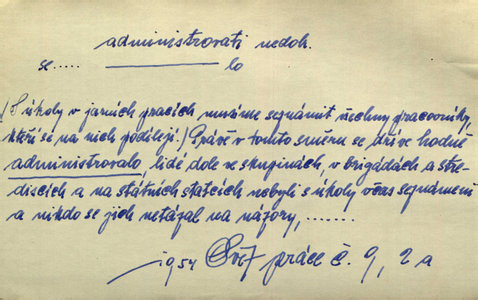 administrovati nedok.
se..... ———— lo
(S úkoly v jarních pracích musíme seznámit všechny pracovníky,
kteří se na nich podílejí.) Právě v tomto směru se dříve hodně
administrovalo, lidé dole ve skupinách, v brigádách a stře-
discích a na státních statcích nebyli s úkoly včas seznámeni
a nikdo se jich netázal na názory, .......
1954 Svět práce č. 9, 2 a